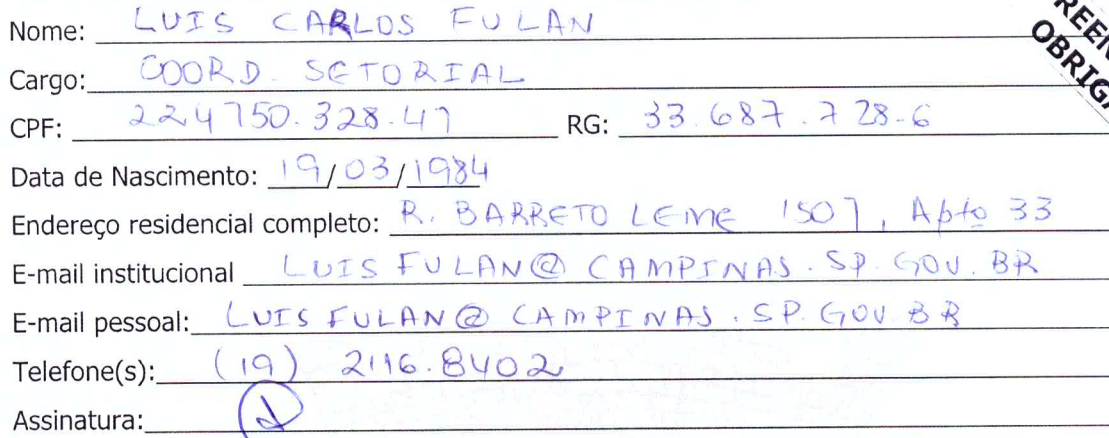 Nome: LUIS CARLOS FULAN
Cargo: COORD. SETORIAL
CPF: 224750.328-47 RG: 33.687.728-6
Data de Nascimento: 19/03/1984
Endereço residencial completo: R. BARRETO LEME 1507, Apto 33
E-mail institucional LUISFULAN@CAMPINAS.SP.GOV.BR
E-mail pessoal: LUISFULAN@CAMPINAS.SP.GOV.BR
Telefone(s): (19) 2116.8402
Assinatura: